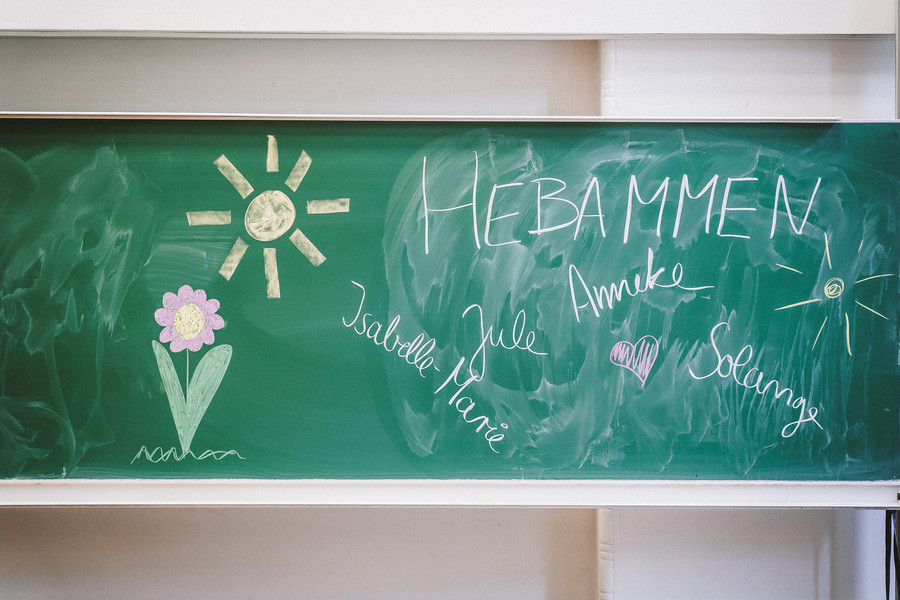 HEBAMMEN
Anneke
Jule
Isabelle-Marie
Solange